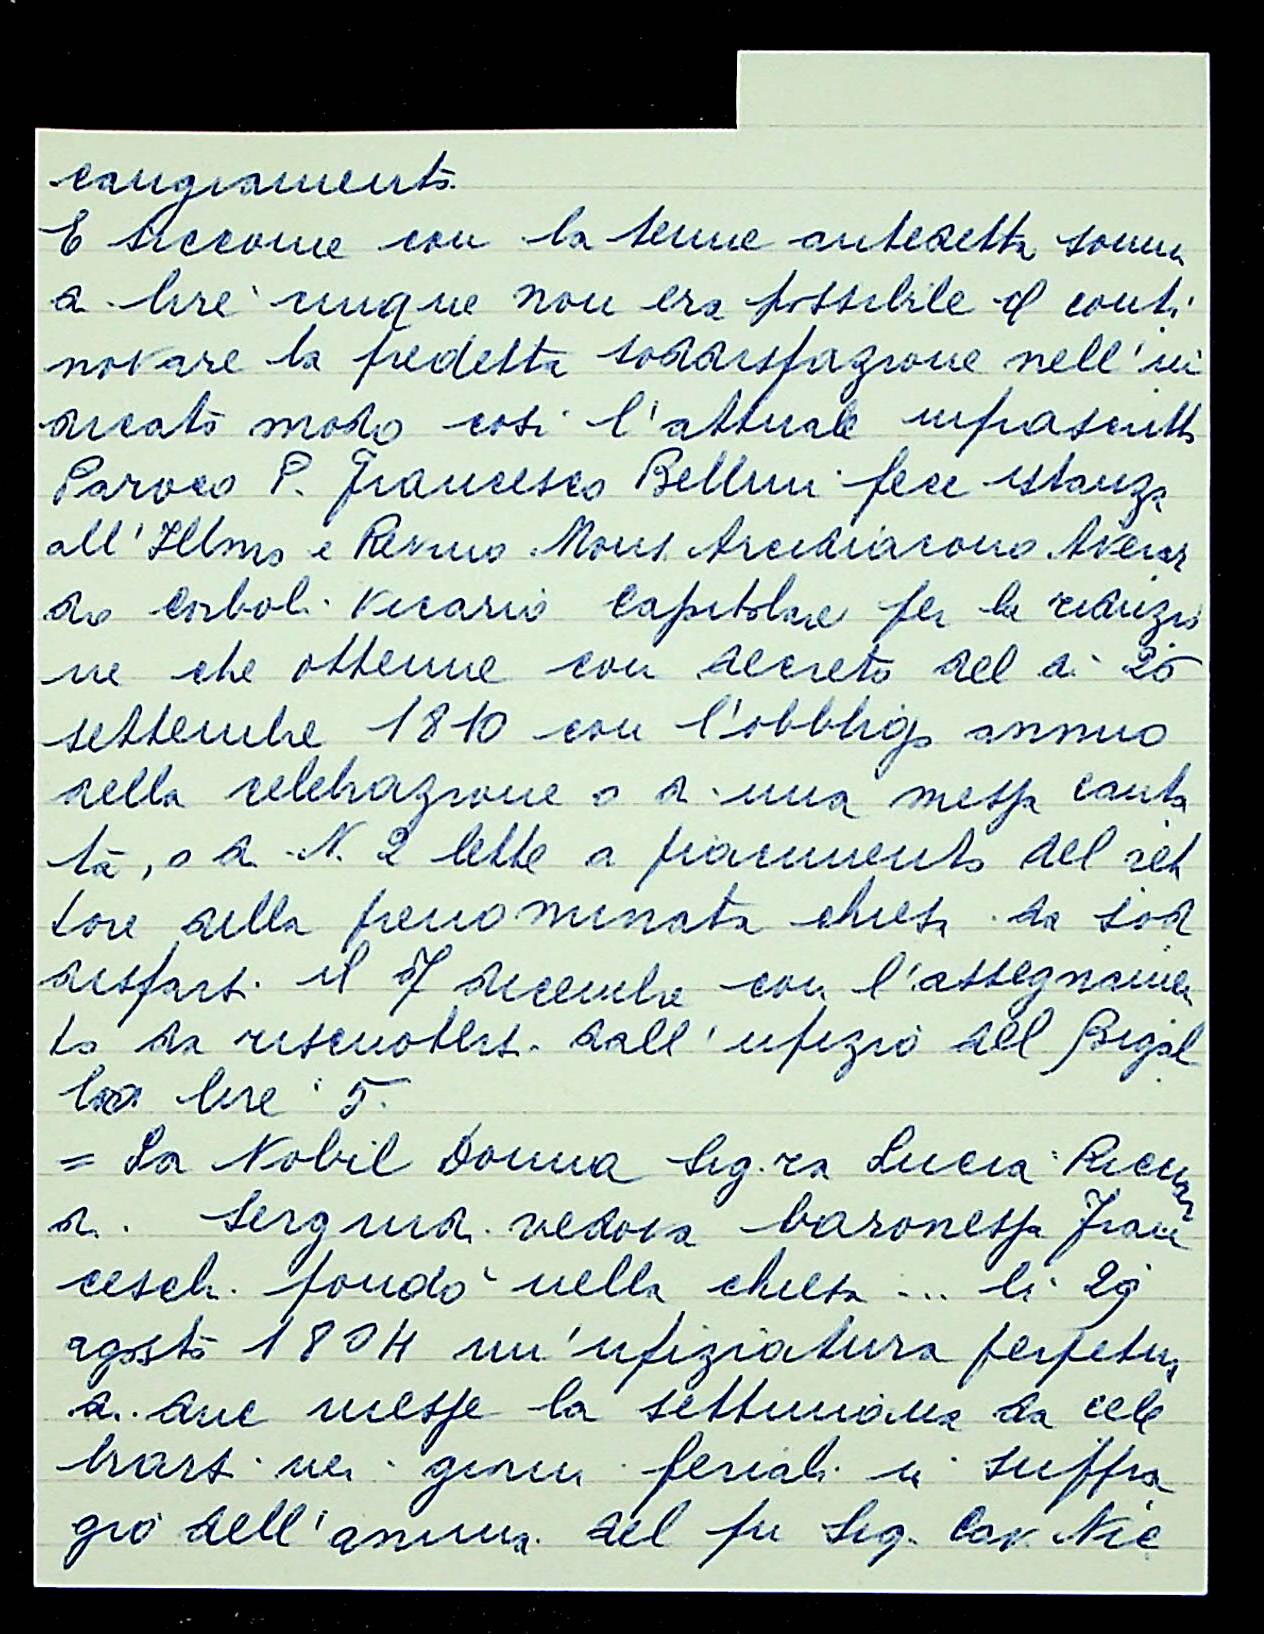 cangiamento.
E siccome con la tenue antedetta somm
a lire cinque non era possibile il conti
novare la predetta soddisfazione nell'in
dicato modo così l'attuale infrascritto
Paroco P. Francesco Bellini fece istanza
all'Illmo e Revmo Mons. Arcidiacono Averar
do Corboli Vicario Capitolare per la riduzio
ne che ottenne con decreto del dì 25
settembre 1810 con l'obbligo annuo
della celebrazione o di una messa canta
ta, o di N. 2 lette a piacimento del ret
tore della prenominata chiesa da sod
disfarsi il 7 dicembre con l'assegnamen
to da riscuotersi dall'ufizio del Bigal
lo lire 5.
= La Nobil Donna Sig.ra Lucia Riccar
di Serguidi vedova baronessa Fran
ceschi fondò nella chiesa ... li 29
agosto 1804 un'ufiziatura perpetua
di due messe la settimana da cele
brarsi nei giorni feriali in suffra
gio dell'anima del fu Sig. Cav. Nic